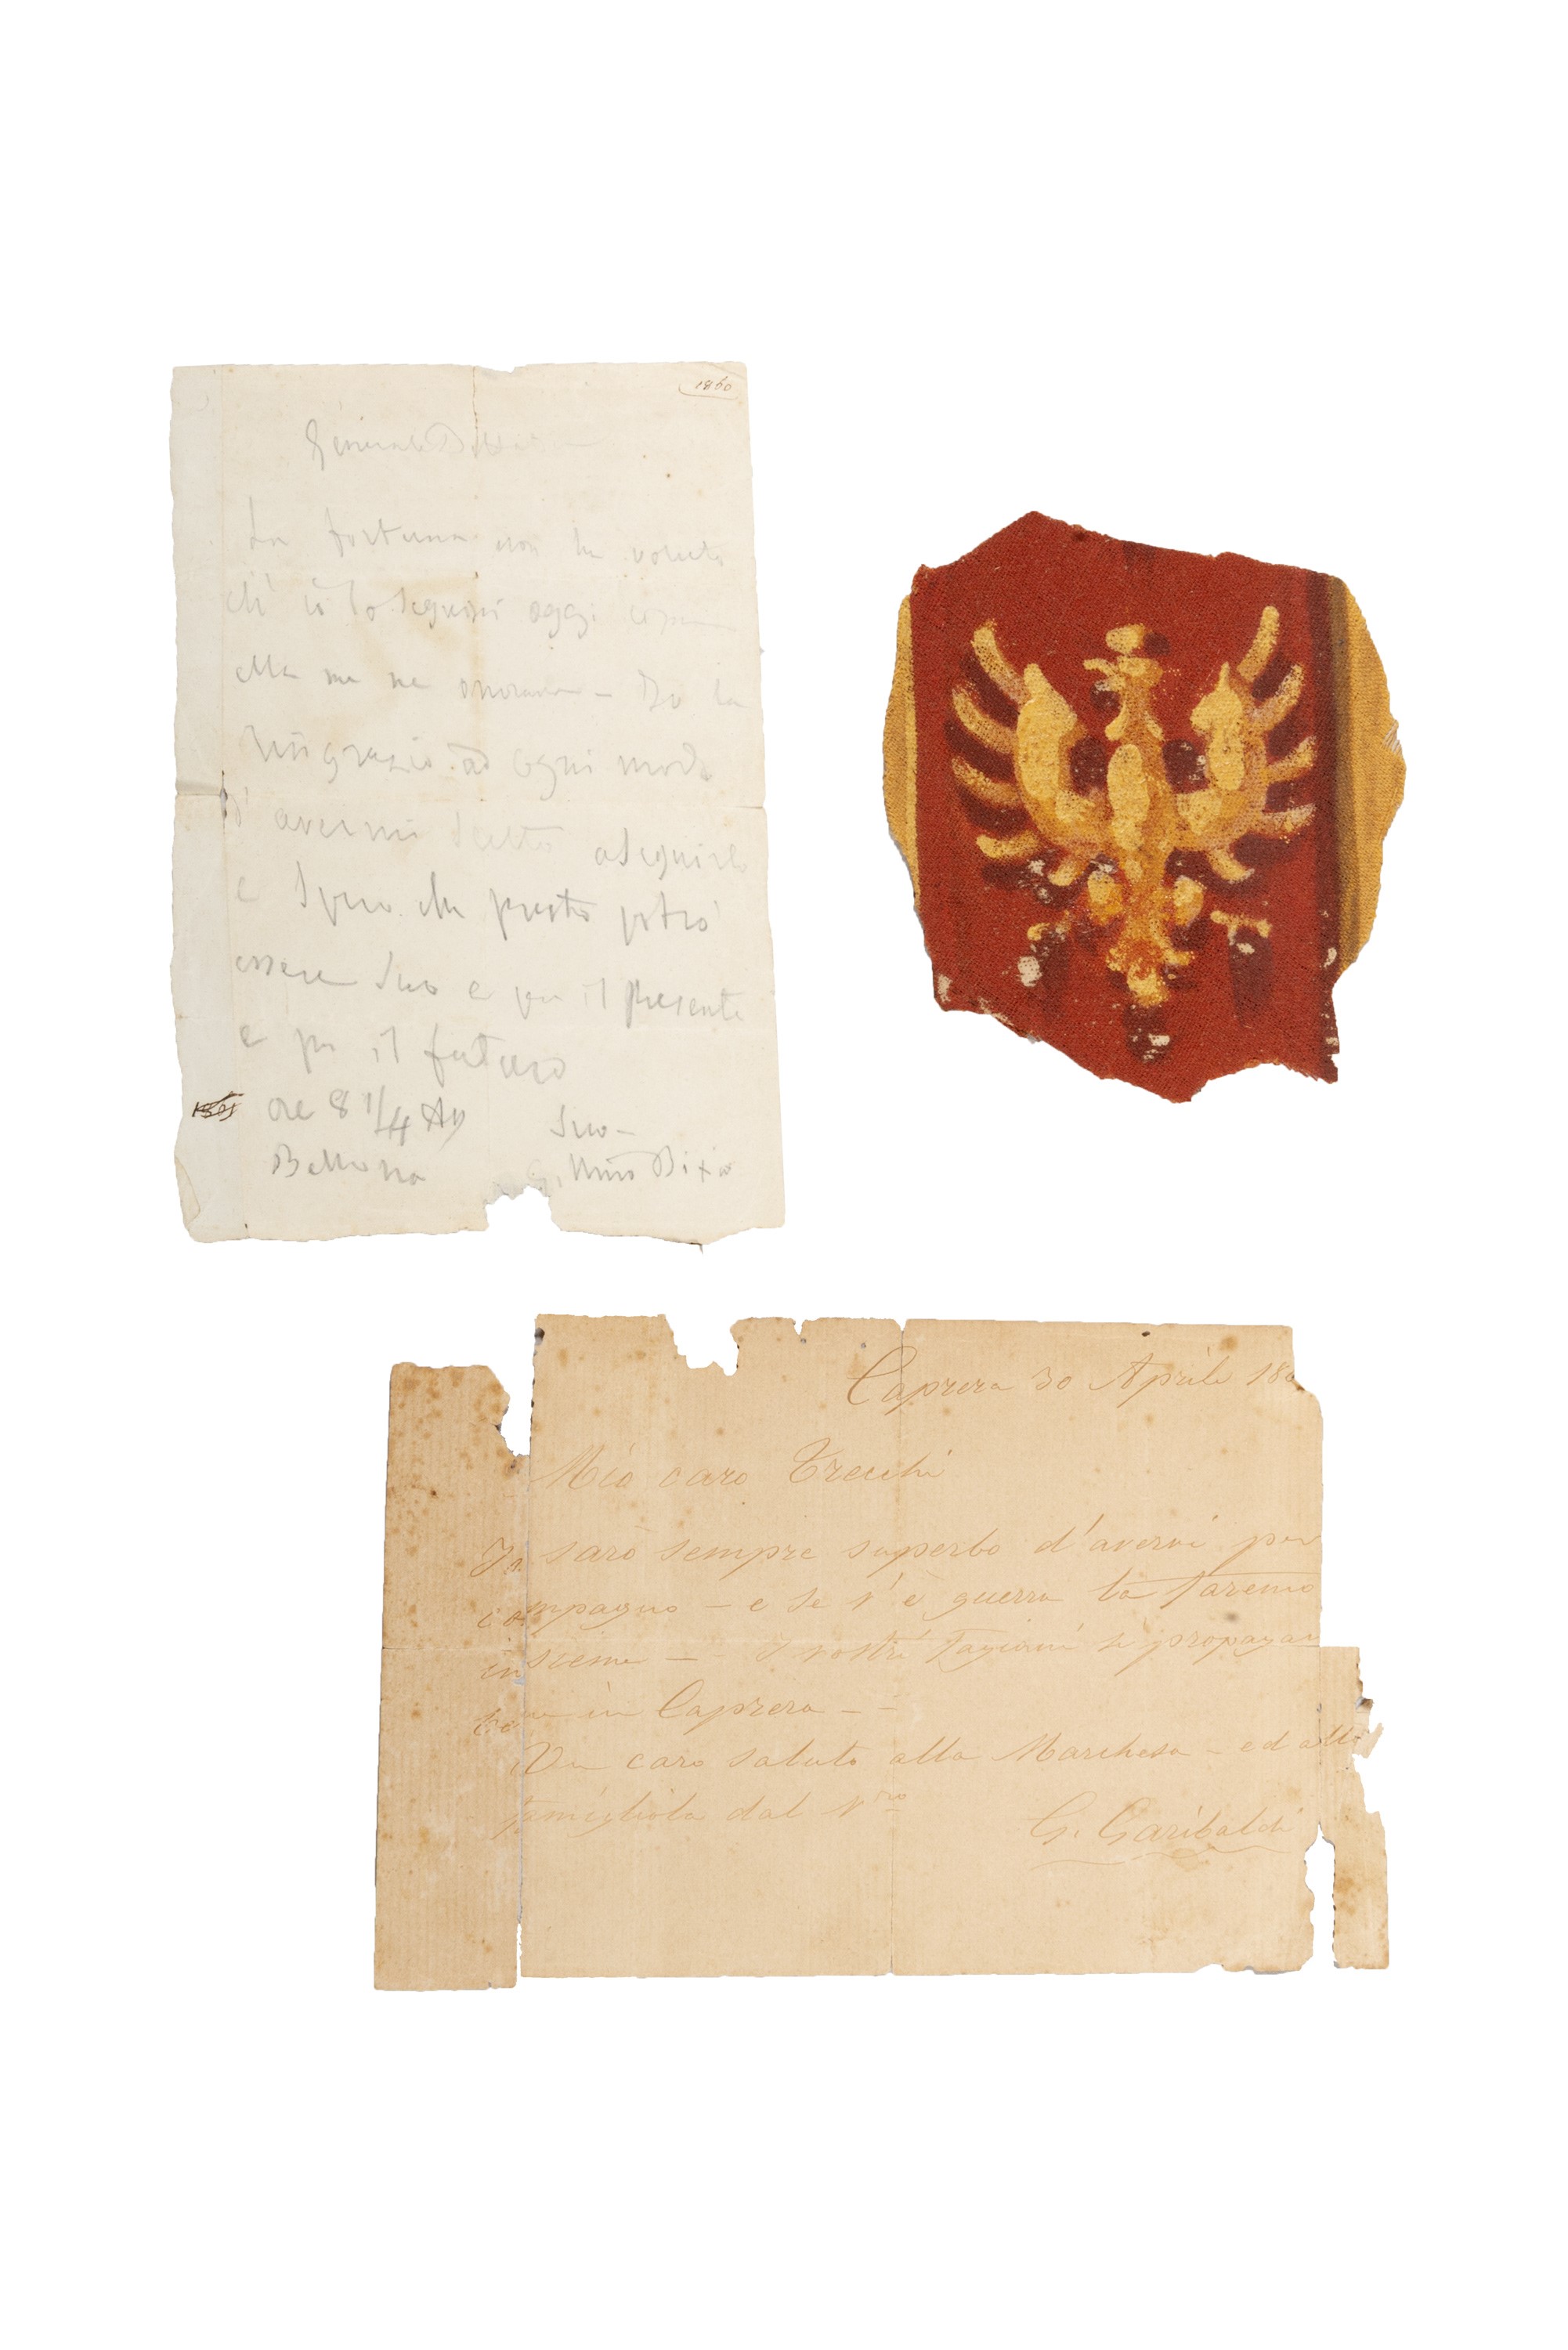 1860
Generale
La fortuna non ha voluto
ch' io lo seguissi oggi come
ella me ne onorava - Io la
ringrazio ad ogni modo
d' avermi scelto a seguirlo
e spero che presto potrò
essere suo e per il presente
e per il futuro
1861
ore 8 1/4
Suo -
Bellona
Nino Bixio
Caprera 30 Aprile 186
Mio caro Trecchi
Io sarò sempre superbo d'avervi per
compagno - e se v'è guerra la faremo
insieme - I vostri fagiani si propagan
in Caprera -
Un caro saluto alla Marchesa - ed alla
famigliola dal V.ro
G. Garibaldi